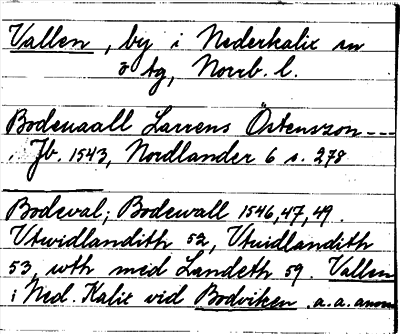 Vallen, by i Nederkalix sn
o tg, Norrb. l.
Bodenaall Larrens Östensson ---
i Jb. 1543, Nordlander 6 s. 278
Bodeval; Bodewall 1546, 47, 49.
Utwidlandith 52, Utuidlandith
53, wth med Landeth 59. Vallen
i Ned. Kalix vid Bodviken. a.a.